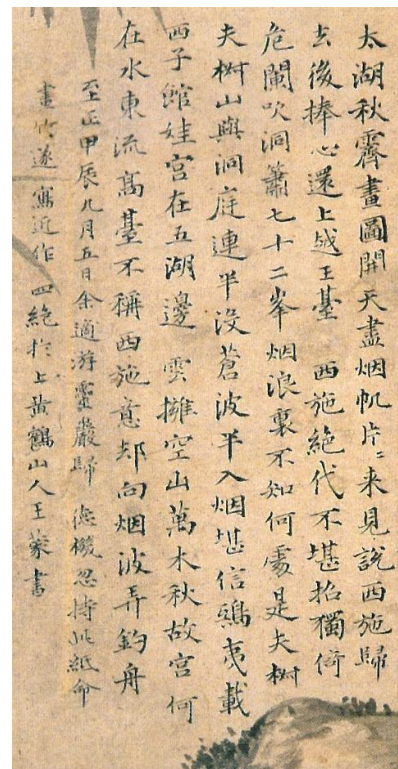 太湖秋霽畫圖開天盡烟帆片〻来見說西施歸
去後捧心還上越王臺 西施絕代不堪招獨倚
危闌吹洞簫七十二峯烟浪裏不知何處是夫椒
夫椒山與洞庭連半沒蒼波半入烟堪信鴟夷載
西子館娃宮在五湖邊 雲擁空山萬木秋故宮何
在水東流高臺不稱西施意却向烟波弄釣舟
至正甲辰九月五日余適游靈巖歸 德機忽持此紙命
畫竹遂寫近作四絕於上黃鶴山人王蒙書